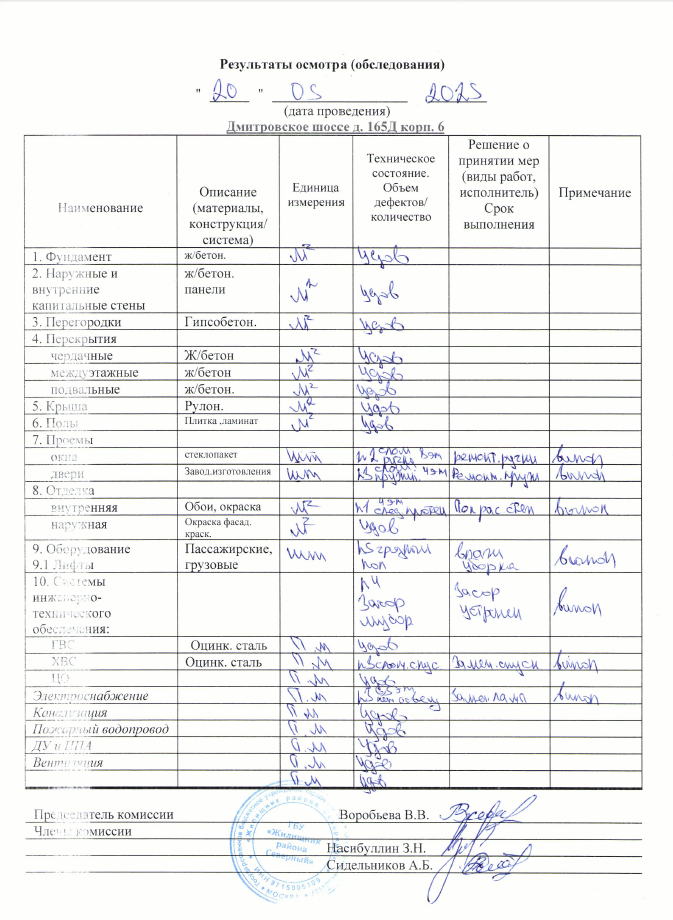 Результаты осмотра (обследования)
" 20 " 05 2025
(дата проведения)
Дмитровское шоссе д. 165Д корп. 6
Наименование
Описание (материалы, конструкция/ система)
Единица измерения
Техническое состояние. Объем дефектов/ количество
Решение о принятии мер (виды работ, исполнитель) Срок выполнения
Примечание
1. Фундамент ж/бетон. м2 удов
2. Наружные и ж/бетон.
внутренние панели м2 удов
капитальные стены
3. Перегородки Гипсобетон. м2 удов
4. Перекрытия
чердачные Ж/бетон м2 удов
междуэтажные ж/бетон м2 удов
подвальные ж/бетон. м2 удов
5. Крыша Рулон. м2 удов
6. Полы Плитка ,ламинат м2 удов
7. Проемы
окна стеклопакет шт п2 слом ручка 8эт ремонт.ручки выпол
двери Завод.изготовления шт п3 слом. пружин. 4эт Ремонт.пруж выпол
8. Отделка
внутренняя Обои, окраска м2 п1 4эт след протеч Покрас стен выпол
наружная Окраска фасад. краск. м2 удов
9. Оборудование Пассажирские, шт п5 грязный
9.1 Лифты грузовые пол уборка выпол
10. Системы
инженерно- Засор Засор
технического мусор устранен выпол
обеспечения:
ГВС Оцинк. сталь П.м удов
ХВС Оцинк. сталь П.м п3 слом.спус Замен.спуск выпол
ЦО П.м удов
Электроснабжение П.м Замен ламп выпол
Канализация П м удов
Пожарный водопровод П.м удов
ДУ и ППА П.м удов
Вентиляция П.м удов
П м удов
Председатель комиссии Воробьева В.В.
Члены комиссии
Насибуллин З.Н.
Сидельников А.Б.
ГБУ
«Жилищник
района
Северный»